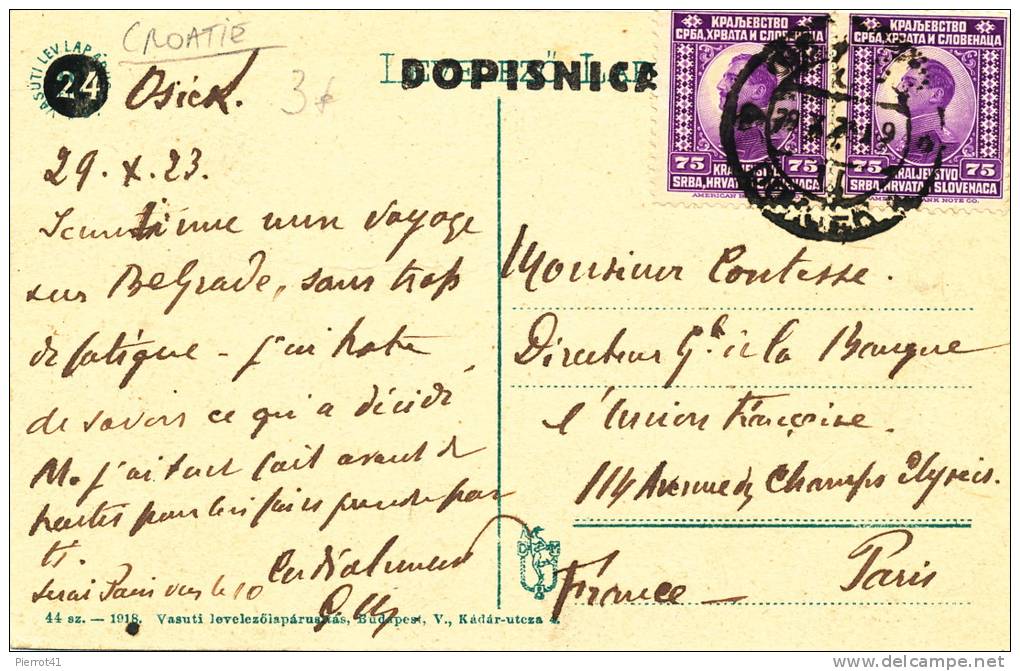 CROATIE
24
VASUTI LEVLAP
DOPISNICA
3
Osiek.
29. X. 23.
voyage
sur Belgrade, sans trop
de fatigue – j'ai hate
de savoir ce qui a décidé
M. j'ai tout fait avant de
Cordialement
serai Paris vers le 10
44 sz. — 1918. Vasuti levelezőlapárusítás, Budapest, V., Kádár-utcza 4.
КРАЉЕВСТВО
СРБА, ХРВАТА И СЛОВЕНАЦА
75 75
KRALJEVSTVO
SRBA, HRVATA I SLOVENACA
AMERICAN BANK NOTE CO.
КРАЉЕВСТВО
СРБА, ХРВАТА И СЛОВЕНАЦА
75 75
KRALJEVSTVO
SRBA, HRVATA I SLOVENACA
AMERICAN BANK NOTE CO.
Monsieur Contesse.
Directeur Gl de la Banque
l'Union Française.
114 Avenue des Champs Elysées.
Paris
France —
Pierrot41
http://www.delcampe.net